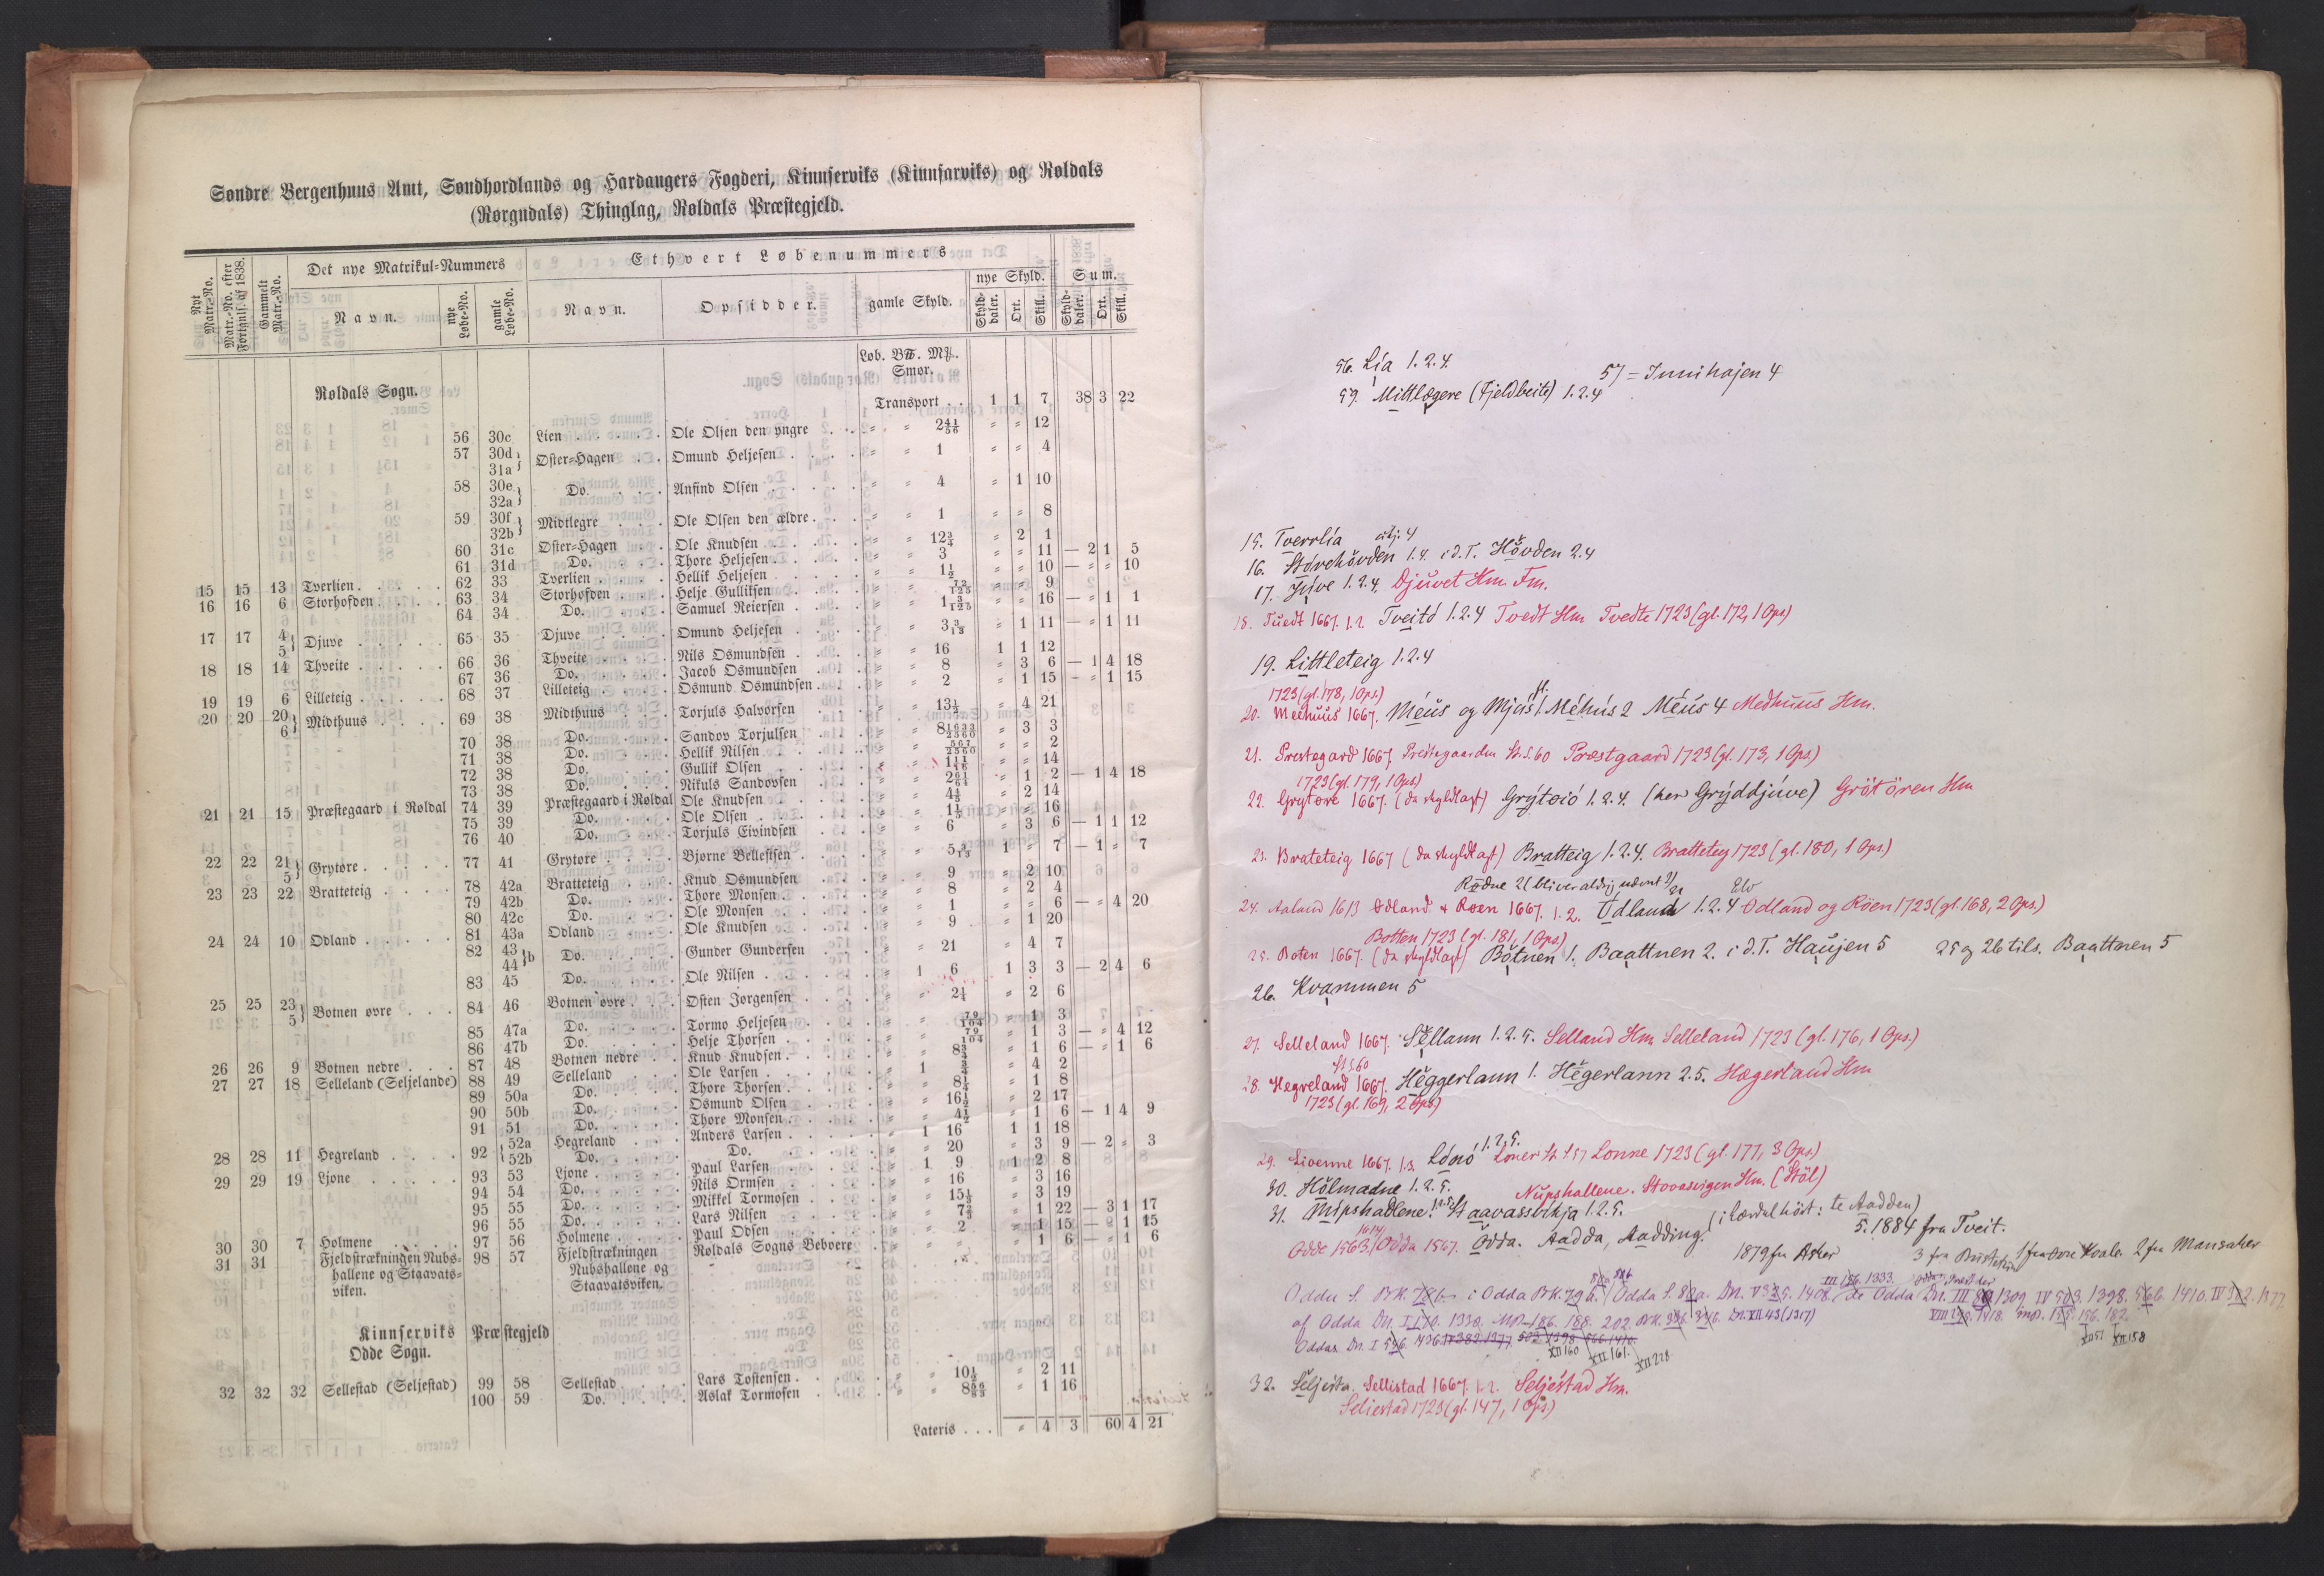 Søndre Bergenhuus Amt, Søndhordlands og Hardangers Fogderi, Kinnserviks (Kinnsarviks) og Røldals
(Rørgndals) Thinglag, Røldals Præstegjeld.
Nyt Matr.-No. Matr.-No. efter Fortegnls. af 1838. Gammelt Matr.-No. Det nye Matrikul-Nummers Ethvert Løbenummers
Navn. nye Løbe-No. gamle Løbe-No. Navn. Opsidder. gamle Skyld. nye Skyld. Sum.
Skyld-daler. Ort. Skill. Skyld-daler. Ort. Skill.
Løb. B℔. M℔.
Smør.
Røldals Sogn.
Transport . . 1 1 7 38 3 22
56 30c Lien . . . . . Ole Olsen den yngre . . . " " 2 41/56 " " 12
57 30d 31a } Øster-Hagen . . Omund Heljesen . . . . " " 1 " " 4
58 30e 32a } Do. . . . Anfind Olsen . . . . . " " 4 " 1 10
59 30f 32b } Midtlegre . . . Ole Olsen den ældre . . . " " 1 " " 8
60 31c Øster-Hagen . . Ole Knudsen . . . . " " 12 3/4 " 2 1
61 31d Do. . . . Thore Heljesen . . . . " " 3 " " 11 — 2 1 5
15 15 13 Tverlien . . . . . 62 33 Tverlien . . . . Hellik Heljesen . . . . " " 1 1/2 " " 10 — " " 10
16 16 6 Storhofden . . . . 63 34 Storhofden . . . Helje Gulliksen . . . . " " 72/125 " " 9
64 34 Do. . . . Samuel Reiersen . . . . " " 1 3/125 " " 16 — " 1 1
17 17 4 5 } Djuve . . . . . 65 35 Djuve . . . . Omund Heljesen . . . . " " 3 3/13 " 1 11 — " 1 11
18 18 14 Thveite . . . . . 66 36 Thveite . . . . Nils Osmundsen . . . . " " 16 1 1 12
67 36 Do. . . . Jacob Osmundsen . . . " " 8 " 3 6 — 1 4 18
19 19 6 Lilleteig . . . . . 68 37 Lilleteig . . . . Osmund Osmundsen . . . " " 2 " 1 15 — " 1 15
20 20 20 6 } Midthuus . . . . 69 38 Midthuus . . . Torjuls Halvorsen . . . " " 13 1/2 " 4 21
70 38 Do. . . . Sandov Torjulsen . . . " " 8 1633/2560 " 3 3
71 38 Do. . . . Hellik Nilsen . . . . " " 567/2560 " " 2
72 38 Do. . . . Gullik Olsen . . . . " " 1 11/16 " " 14
73 38 Do. . . . Nikuls Sandovsen . . . " " 2 61/64 " 1 2 — 1 4 18
21 21 15 Præstegaard i Røldal 74 39 Præstegaard i Røldal Ole Knudsen . . . . " " 4 4/5 " 2 14
75 39 Do. . . . Ole Olsen . . . . . " " 1 1/5 " " 16
76 40 Do. . . . Torjuls Eivindsen . . . " " 6 " 3 6 — 1 1 12
22 22 21 5 } Grytøre . . . . . 77 41 Grytøre . . . . Bjørne Bellestsen . . . " " 5 9/13 1 " 7 — 1 " 7
23 23 22 Bratteteig . . . . 78 42a Bratteteig . . . Knud Osmundsen . . . " " 9 " 2 10
79 42b Do. . . . Thore Monsen . . . . " " 8 " 2 4
80 42c Do. . . . Ole Monsen . . . . " " 1 " " 6 — " 4 20
24 24 10 Odland . . . . . 81 43a Odland . . . . Ole Knudsen . . . . " " 9 " 1 20
82 43 44 } b Do. . . . Gunder Gundersen . . . " " 21 " 4 7
83 45 Do. . . . Ole Nilsen . . . . " 1 6 1 3 3 — 2 4 6
25 25 23 5 } Botnen øvre . . . 84 46 Botnen øvre . . . Østen Jørgensen . . . " " 2 1/4 " 2 6
85 47a Do. . . . Tormo Heljesen . . . " " 79/104 " 1 3
86 47b Do. . . . Helje Thorsen . . . . " " 79/104 " 1 3 — " 4 12
26 26 9 Botnen nedre . . . 87 48 Botnen nedre . . Knud Knudsen . . . . " " 8 3/4 " 1 6 — " 1 6
27 27 18 Selleland (Seljelande) 88 49 Selleland . . . Ole Larsen . . . . " 1 3/4 " 4 2
89 50a Do. . . . Thore Thorsen . . . . " " 8 1/4 " 1 8
90 50b Do. . . . Osmund Olsen . . . . " " 16 1/2 " 2 17
91 51 Do. . . . Thore Monsen . . . . " " 4 1/2 " 1 6 — 1 4 9
28 28 11 Hegreland . . . . 92 { 52a Hegreland . . . Anders Larsen . . . . " 1 16 1 1 18
52b Do. . . . Do. . . . . " " 20 " 3 9 — 2 " 3
29 29 19 Ljone . . . . . 93 53 Ljone . . . . Paul Larsen . . . . " 1 9 1 2 8
94 54 Do. . . . Nils Ormsen . . . . " " 16 " 3 16
95 55 Do. . . . Mikkel Tormosen . . . " " 15 1/3 " 3 19
96 55 Do. . . . Lars Nilsen . . . . " " 7 2/3 " 1 22 — 3 1 17
30 30 7 Holmene . . . . . 97 56 Holmene . . . . Paul Odsen . . . . " " 2 " 1 15 — " 1 15
31 31 Fjeldstrækningen Nubs- 98 57 Fjeldstrækningen Røldals Sogns Beboere . " " " " 1 6 — " 1 6
hallene og Staavats- Nubshallene og
viken. Staavatsviken.
Kinnserviks Præstegjeld
Odde Sogn.
32 32 32 Sellestad (Seljestad) 99 58 Sellestad . . . Lars Tostensen . . . . " " 10 1/2 " 2 11
100 59 Do. . . . Aslak Tormosen . . . " " 8 56/83 " 1 16
Lateris . . . " 4 3 60 4 21
56. Lia 1.2.4.
57 = Innihajen 4
59. Mittlægere (Fjeldbeite) 1.2.4
15. Tverrlia 4
16. Storehövden 1.4. i d.T. Hövden 2.4
17. Juve 1.2.4. Djuvet Hm. Fm.
18. Tuedt 1667. 1.2. Tveitó 1.2.4 Tvedt Hm Tvedte 1723 (gl. 172, 1 Ops)
19. Littleteig 1.2.4
1723 (gl. 178, 1 Ops.)
20. Meehuus 1667. Méus og Mjéus 1. Méhús 2 Méus 4 Medhuus Hm.
21. Prestegard 1667. Prestegaarden St. S. 60 Præstgaard 1723 (gl. 173, 1 Ops)
1723 (gl. 179, 1 Ops)
22. Grytøre 1667. (da skyldlagt) Grýtoió 1.2.4. (her Grýddjúve) Grötören Hm
23. Brateteig 1667 (da skyldlagt) Bratteig 1.2.4. Bratteteig 1723 (gl. 180, 1 Ops.)
Rödne 2 (bliver aldrig nævnt)
24. Aaland 1613 Odland & Roen 1667. 1.2. Odland 1.2.4 Odland og Röen 1723 (gl. 168, 2 Ops.)
Botten 1723 (gl. 181, 1 Ops)
25. Boten 1667. (da skyldlagt) Botnen 1. Baattnen 2. i d.T. Haujen 5 25 og 26 tils. Baattnen 5
26. Kvammen 5
27. Selleland 1667. Sellann 1.2.5. Selland Hm Selleland 1723 (gl. 176, 1 Ops.)
St. S. 60
28. Hegreland 1667. Heggerlann 1. Hegerlann 2.5. Hægerland Hm
1723 (gl. 169, 2 Ops)
29. Lioenne 1667. 1.2. Lónó 1.2.5. Loner St. S. 57 Lonne 1723 (gl. 177, 3 Ops)
30. Hólmadne 1.2.5. Nupshallene. Stovasvigen Hm. (Stöl)
31. Nupshadlene 1.2.5. Staavassvikja 1.2.5. (i Lærdal hört: te Aadden)
Odde 1563. 1614 Odda 1567. Odda. Aadda, Aadding. 5. 1884 fra Tveit.
1879 fra Asker 3 fra 1 fra Øvre Kvale 2 fra Mansaker
Oddu S. BK. 78b i Odda BK. 79b. Odda S. 80a. Dn. V 1408. de Odda Dn. III 1309 IV 1398. 566. 1410.
af Odda Dn. I 1330. MP 186. 188. 202. Dn. XII 43 (1317) VIII 1418. 156. 182.
Oddar Dn. I 1436 XII 160 XII 161. XII 228 XII 51 XII 158
32. Seljesta. Sellistad 1667. 1.2. Seljestad Hm.
Seliestad 1723 (gl. 147, 1 Ops.)